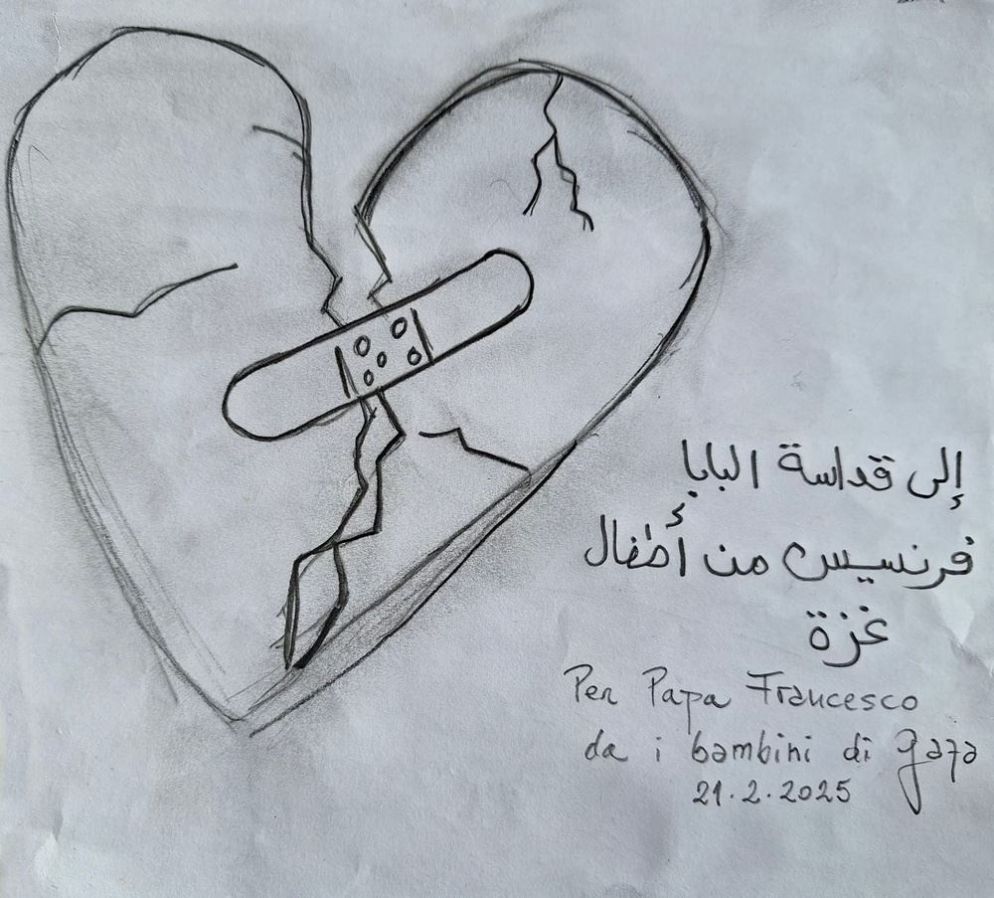 إلى قداسة البابا
فرنسيس من أطفال
غزة
Per Papa Francesco
da i bambini di gaza
21.2.2025